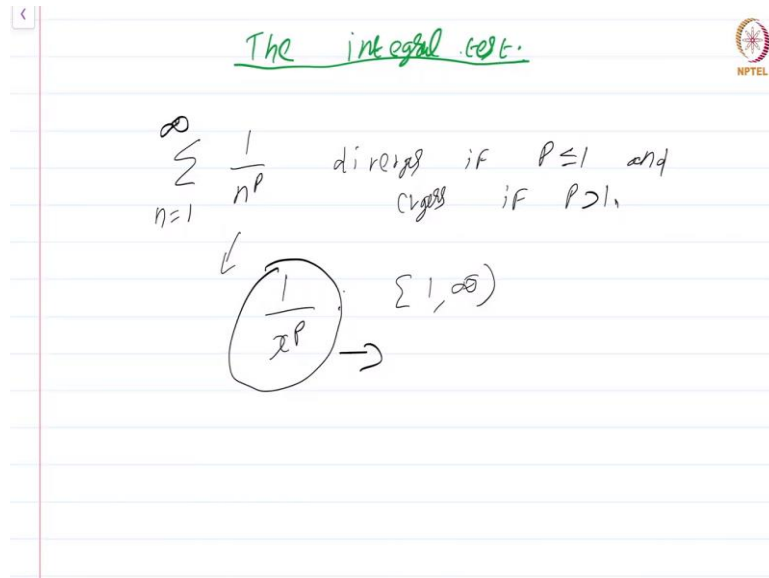 The integral test.
NPTEL
∞
∑ 1/n^p diverges if P ≤ 1 and
n=1
cvges if P > 1.
1/x^p [1, ∞)